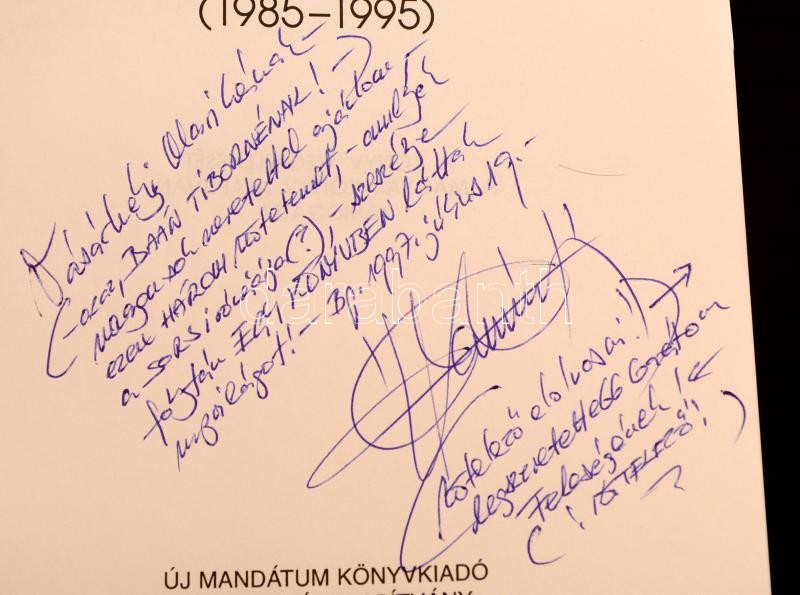 (1985–1995)
Vásárhelyi Marikának –
(– azaz, BAÁN TIBORNÉNAK! –)
nagyon sok szeretettel ajánlom –
ezen HÁROM kötetemet, – amelyek
a sors iróniája (?), – szeszélye
folytán EGY KÖNYVBEN láttak
napvilágot! – Bp. 1997. július 19. –
(kötelező elolvasni!
legszeretettebb barátom
Feleségének!
(! KÖTELEZŐ! )
darabanth
ÚJ MANDÁTUM KÖNYVKIADÓ